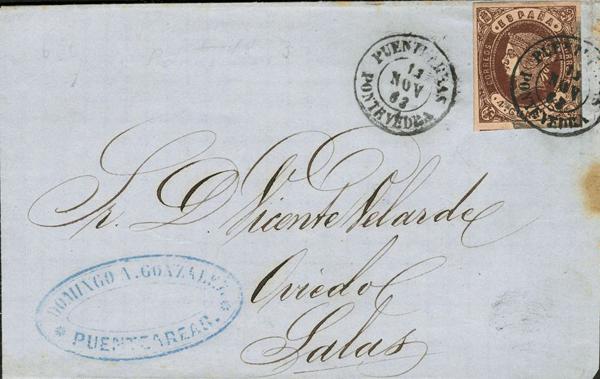 PUENTEAREAS
13
NOV
63
PONTEVEDRA
ESPAÑA
CORREOS
PONTEVEDRA
NOV
Sr. D. Vicente Velarde
Oviedo
Salas
DOMINGO A. GONZALEZ
PUENTEAREAS.